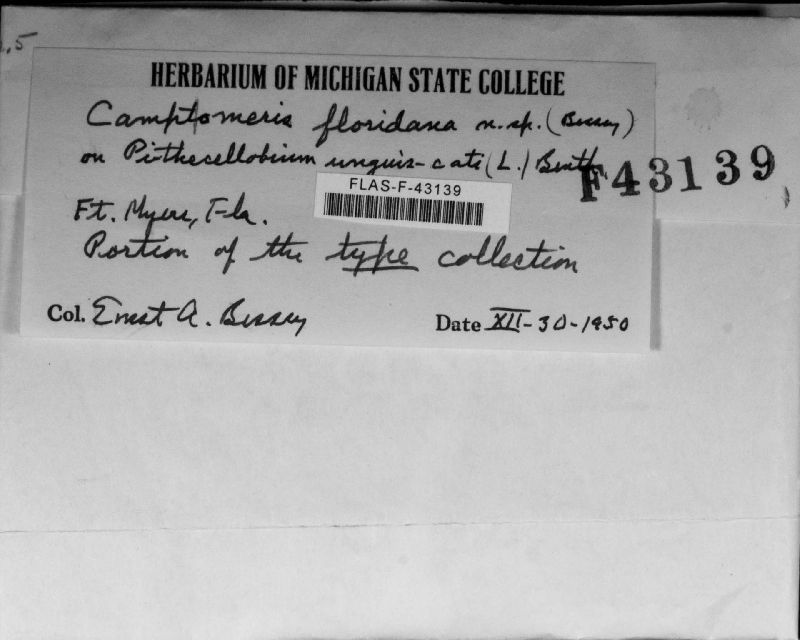 .5
HERBARIUM OF MICHIGAN STATE COLLEGE
Camptomeris floridana n.sp. (Bessey)
on Pithecellobium unguis-cati (L.) Benth
F43139
FLAS-F-43139
Ft. Myers, Fla.
Portion of the type collection
Col. Ernst A. Bessey
Date XII-30-1950